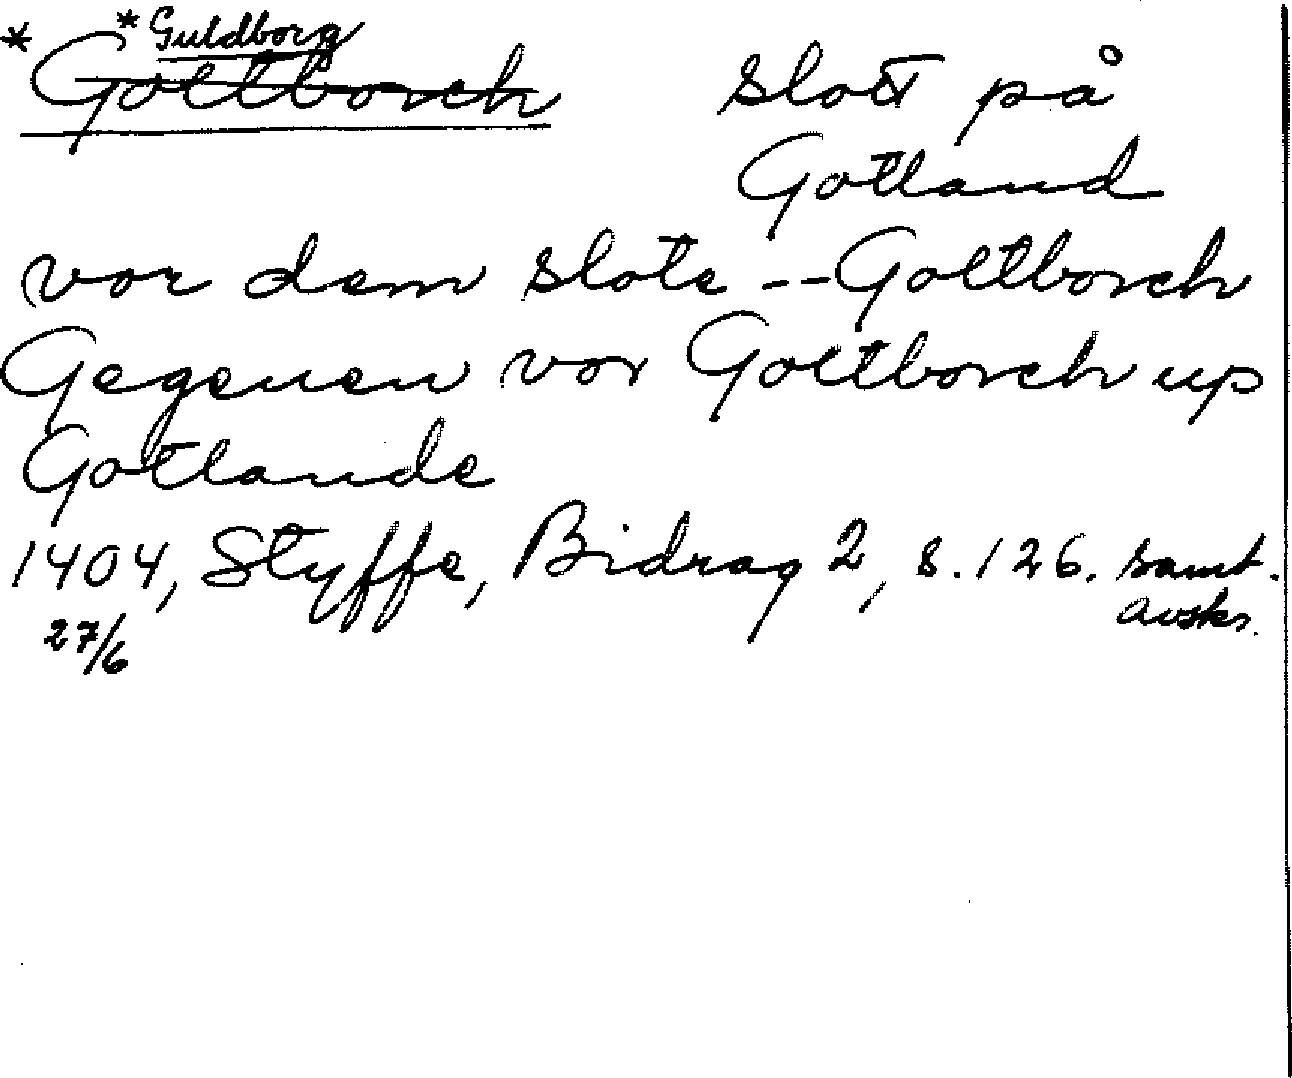 * Guldborg
* Goltborch slott på
Gotland
vor dem slote -- Goltborch
Gegeuen vor Goltborch up
Gotlande
1404, Styffe, Bidrag 2, s. 126. samt.
avskr.
27/6